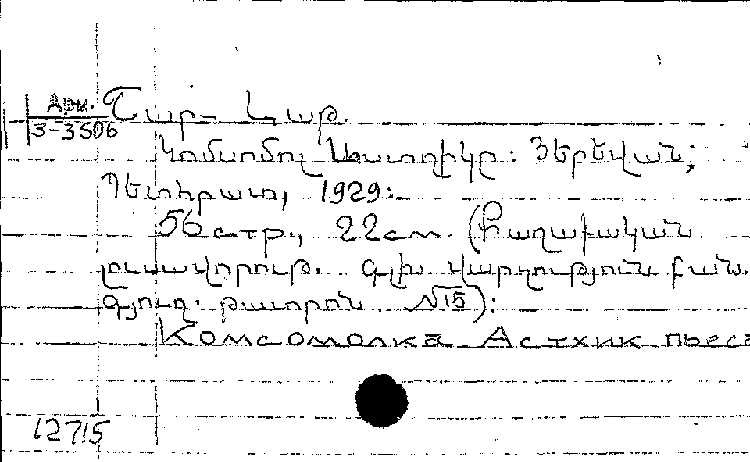 Арм.
3-3506
Շար- Կաթ
Կոմսոմոլ Աստղիկը: Յերեվան;
Պետհրատ, 1929:
56 стр., 22 см. (Քաղաքական
լուսավորութ. գլխ. վարչություն. բան.
գյուղ. թատրոն №15):
Комсомолка Астхик пьеса
12715